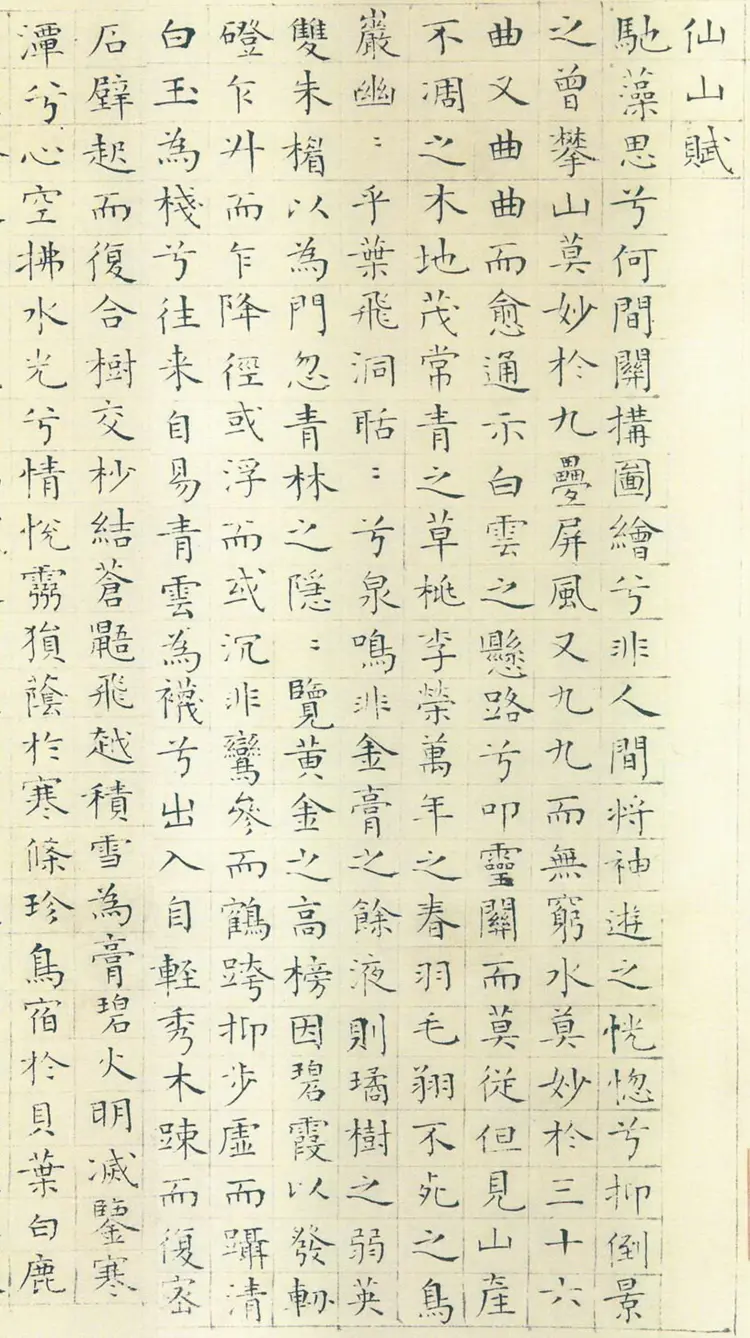 仙山賦
馳藻思兮何間關構圖繪兮非人間將神遊之恍惚兮抑倒景
之曾攀山莫妙於九疊屏風又九九而無窮水莫妙於三十六
曲又曲曲而愈通示白雲之懸路兮叩靈關而莫從但見山產
不凋之木地茂常青之草桃李榮萬年之春羽毛翔不死之鳥
巖幽〻乎葉飛洞聒〻兮泉鳴非金膏之餘液則璚樹之弱英
雙朱楣以為門忽青林之隱〻覽黃金之高榜因碧霞以發軔
磴乍升而乍降徑或浮而或沉非鸞參而鶴跨抑步虛而躡清
白玉為棧兮往来自易青雲為襪兮出入自輕秀木踈而復密
石壁起而復合樹交杪結蒼鼯飛越積雪為膏碧火明滅鑒寒
潭兮心空拂水光兮情悅霧猿蔭於寒條珍鳥宿於貝葉白鹿